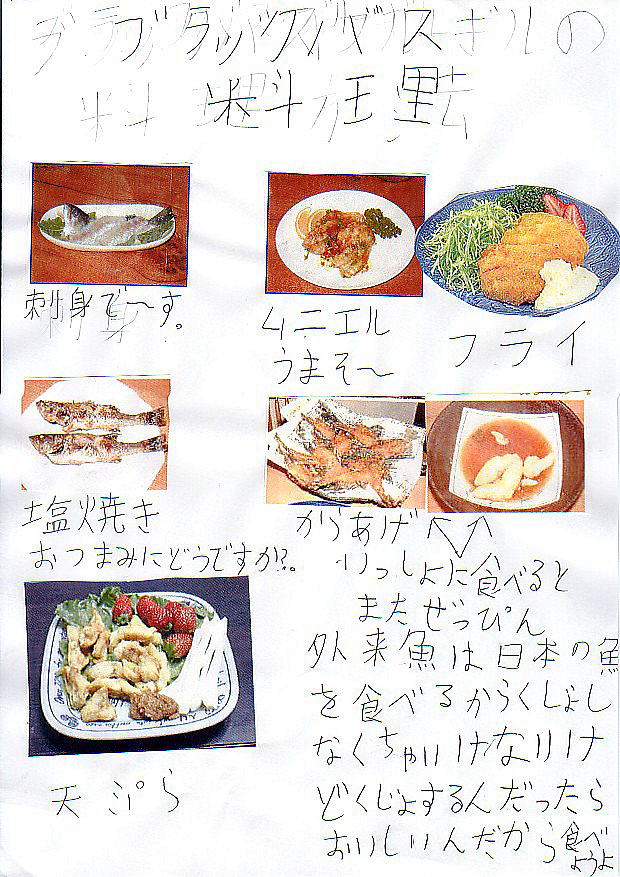 ブラックバスギルの
料理法
刺身で～す。
ムニエル
うまそ～
フライ
塩焼き
おつまみにどうですか!?。
からあげ↖↗
いっしょに食べると
またぜっぴん
天ぷら
外来魚は日本の魚
を食べるからくじょし
なくちゃいけないけ
どくじょするんだったら
おいしいんだから食べ
ようよ